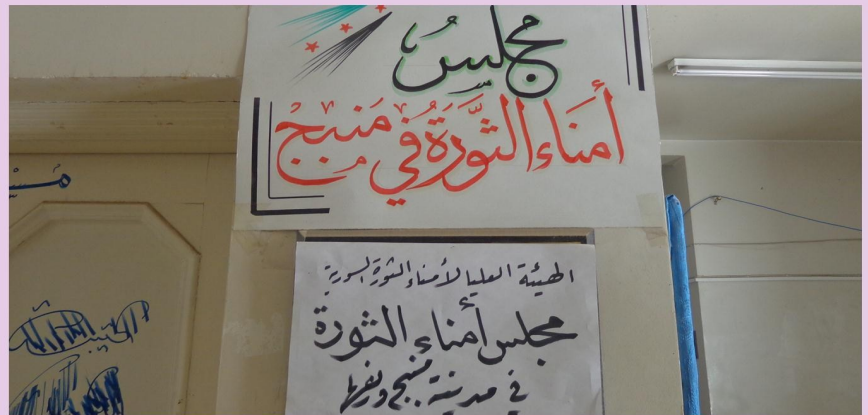 مجلس
أمَناء الثَّورَةُ في مَنبج
الهيئة العليا لأمناء الثورة السورية
مجلس أمناء الثورة
في مدينة منبج وريفها